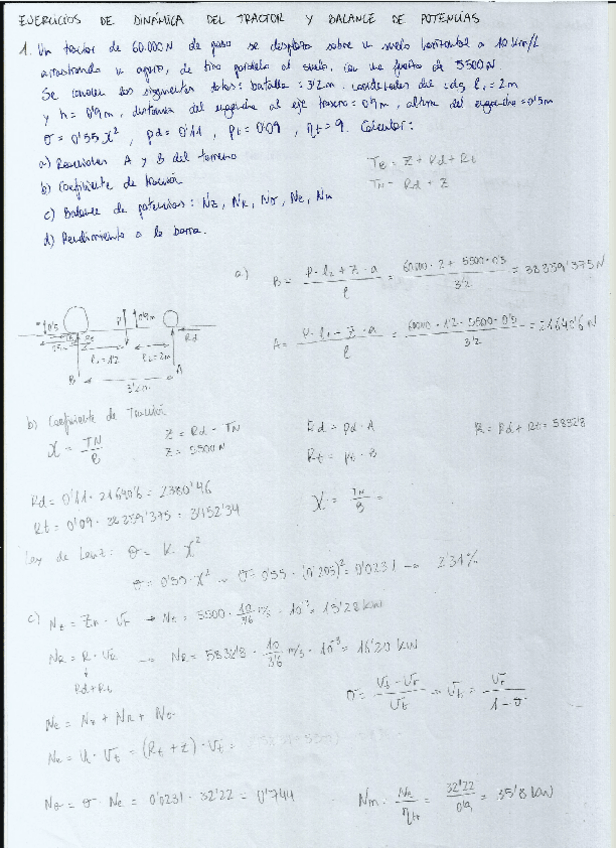 EJERCICIOS DE DINÁMICA DEL TRACTOR Y BALANCE DE POTENCIAS
1. Un tractor de 60.000N de peso se desplaza sobre un suelo horizontal a 10 km/h
arrastrando un apero, de tiro paralelo al suelo, con una fuerza de 5500N
Se conocen los siguientes datos: batalla = 3'2m. coordenadas del cdg l₂ = 2m
y h = 0'9m, distancia del enganche al eje trasero = 0'9m, altura del enganche = 0'5m
σ = 0'55 χ², ρd = 0'11, ρt = 0'09, ηt = 9. Calcular:
a) Reacciones A y B del terreno
b) Coeficiente de tracción
c) Balance de potencias: Nz, NR, Nσ, Ne, Nm
d) Rendimiento a la barra.
Te = Z + Rd + Rt
TN = Rd + Z
a) B = P · l₂ + Z · a / l = 60000 · 2 + 5500 · 0'5 / 3'2 = 38359'375 N
A = P · l₁ - Z · a / l = 60000 · 1'2 - 5500 · 0'5 / 3'2 = 21640'6 N
0'5
0'9m
P
Rd
l₁ = 1'2
l₂ = 2m
B
A
3'2m
b) Coeficiente de Tracción
χ = TN / B
Z = Rd - TN
Z = 5500N
Rd = ρd · A
Rt = ρt · B
R = Rd + Rt = 5832'8
Rd = 0'11 · 21640'6 = 2380'46
Rt = 0'09 · 38359'375 = 3452'34
χ = TN / B =
Ley de Lenz: σ = K · χ²
σ = 0'55 · χ² → σ = 0'55 · (0'205)² = 0'0231 → 2'31%
c) Nz = Zn · Vr → Nz = 5500 · 10/3'6 m/s · 10⁻³ = 15'28 kW
NR = R · VR → NR = 5832'8 · 10/3'6 m/s · 10⁻³ = 16'20 kW
Rd + Rt
σ = Vt - Vr / Vt → Vt = Vr / 1 - σ
Ne = Nz + NR + Nσ
Ne = U · Vt = (Rt + Z) · Vt =
Nσ = σ · Ne = 0'0231 · 32'22 = 0'744
Nm = Ne / ηtr = 32'22 / 0'9 = 35'8 kW